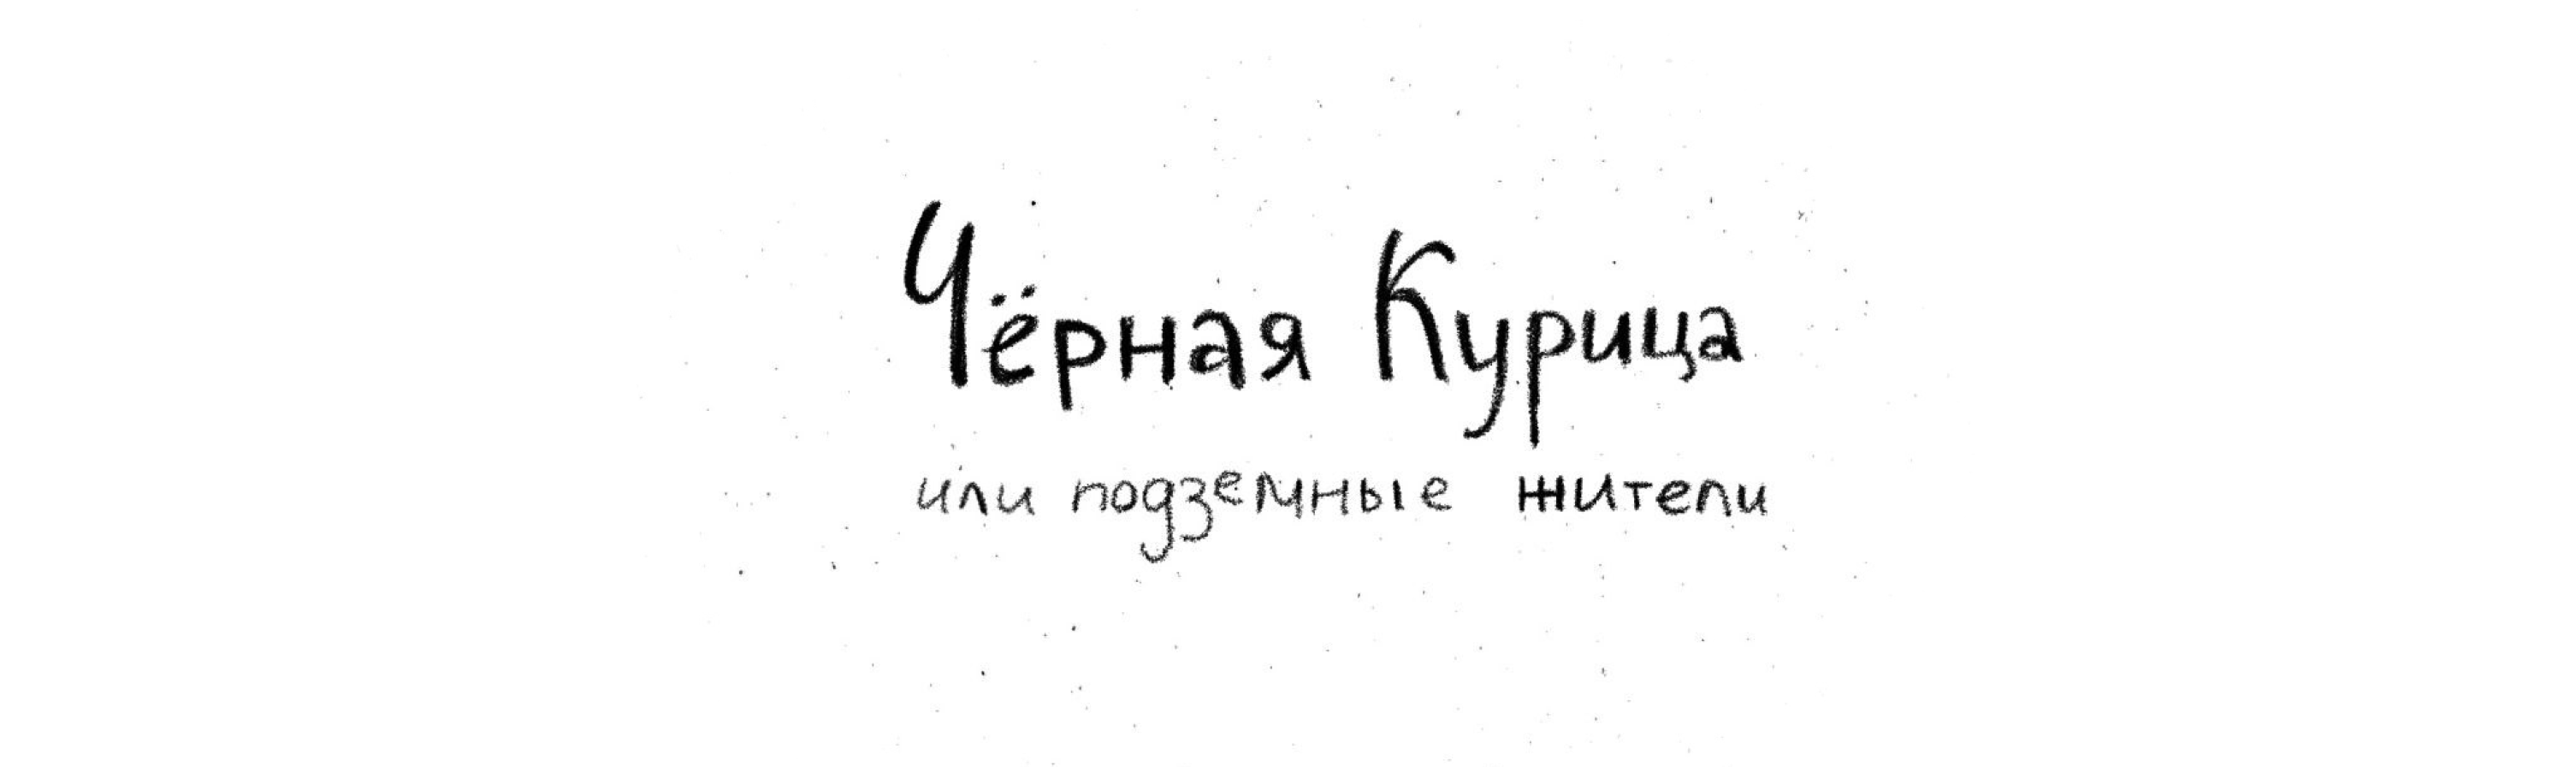 Чёрная Курица
или подземные жители